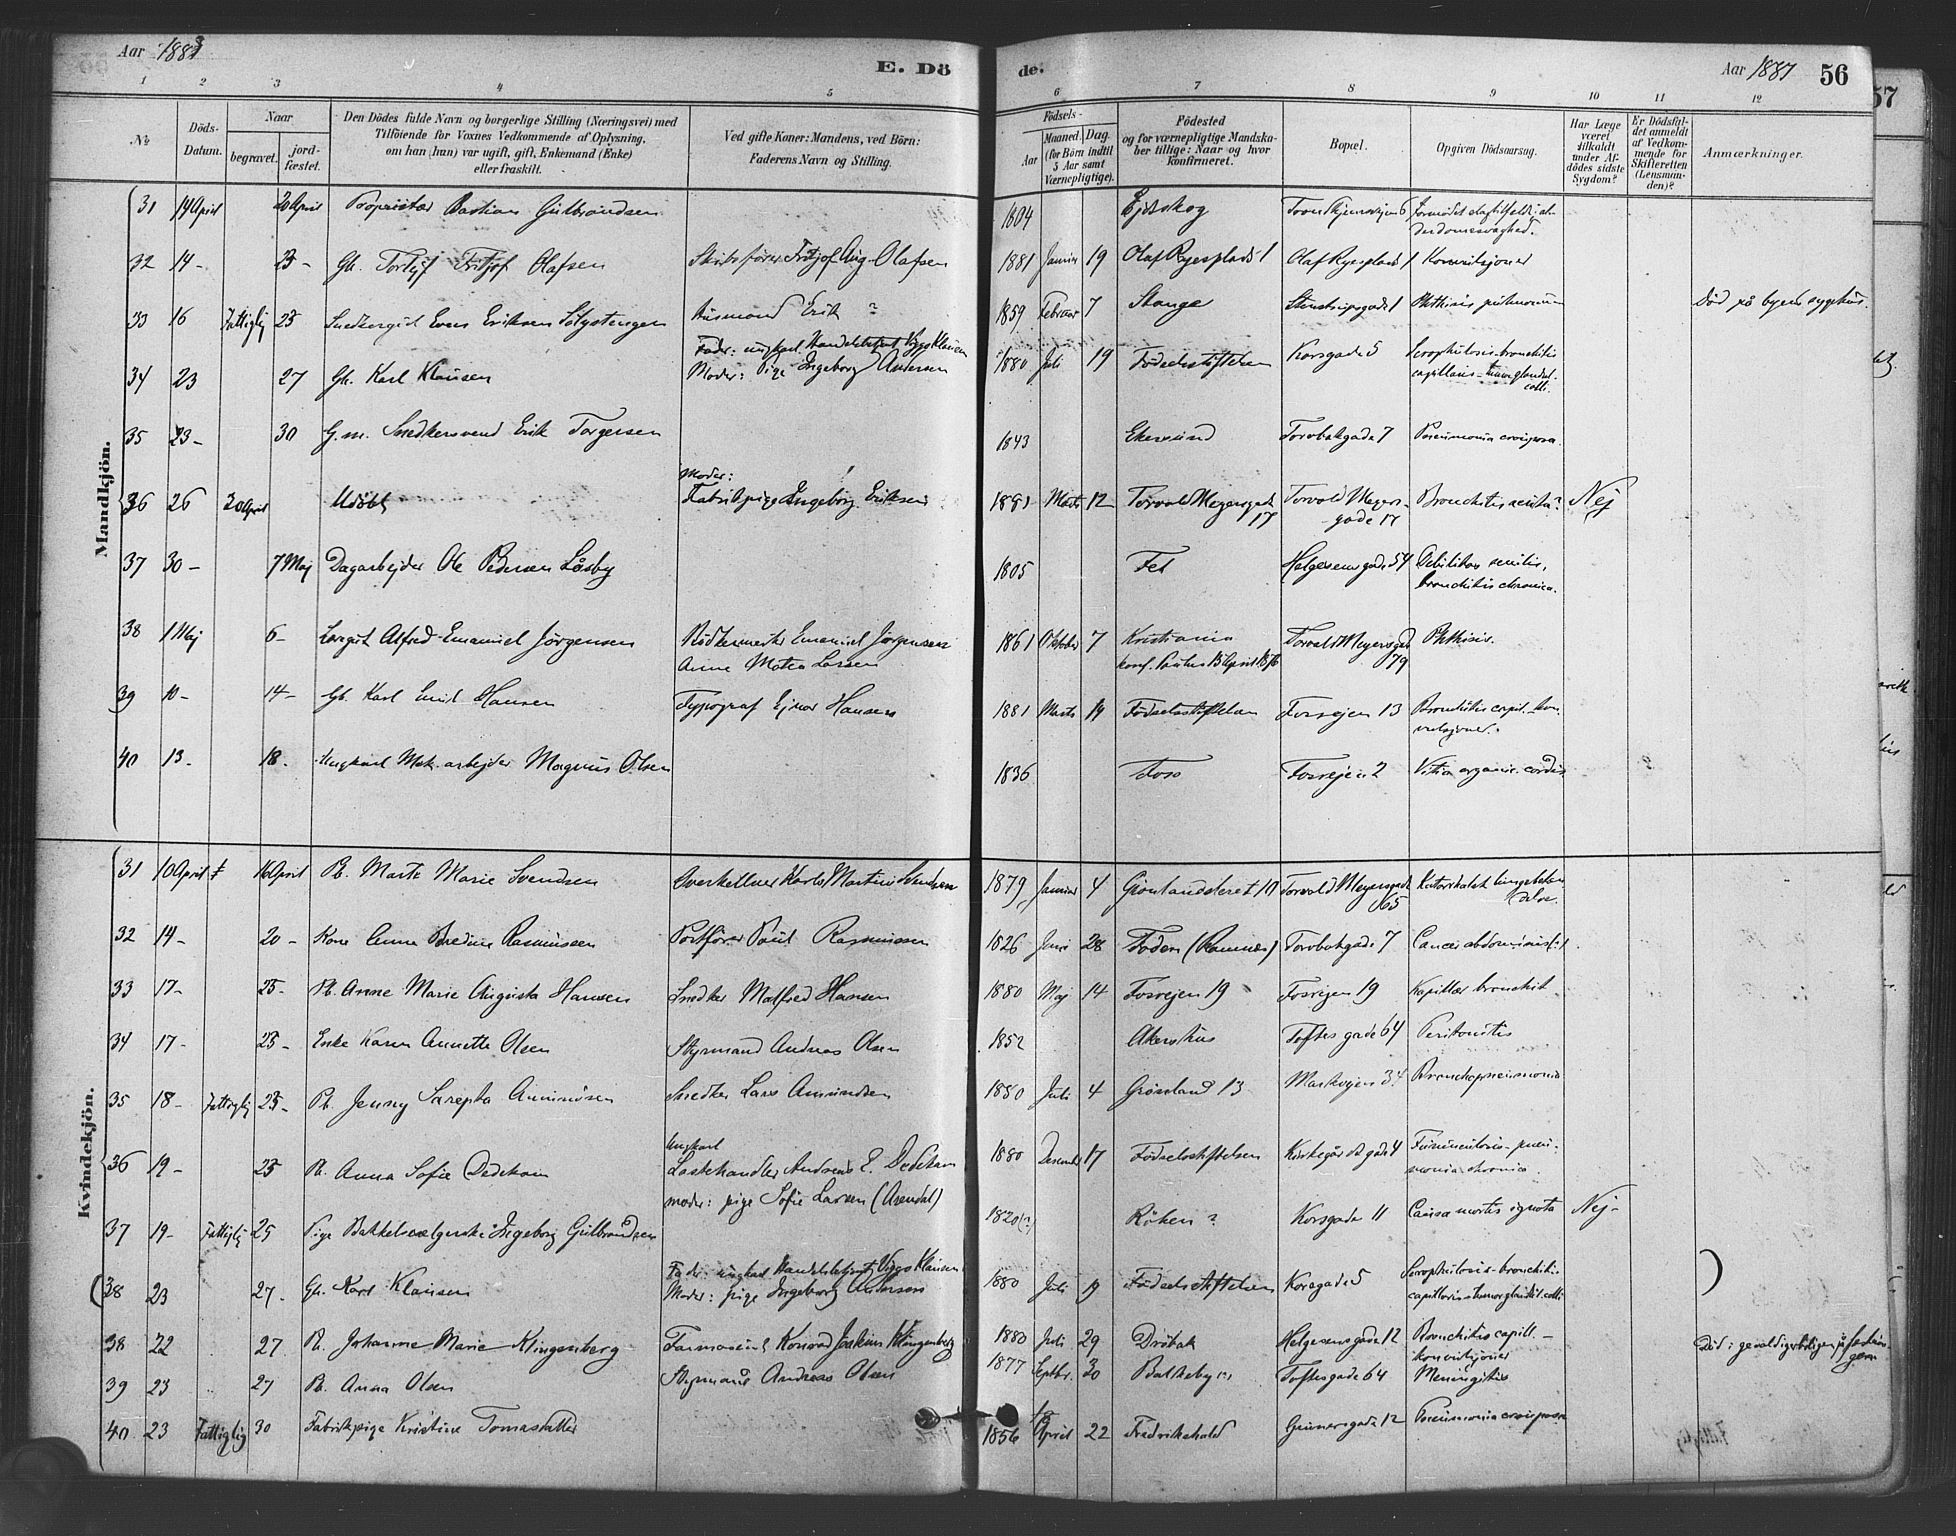 Aar 1883
E. Dö
de.
Aar 1883
56
57
1 2 3 4 5 6 7 8 9 10 11 12
№
Döds-Datum.
Naar
begravet.
jord-fæstet.
Den Dödes fulde Navn og borgerlige Stilling (Næringsvei) med
Tilföiende for Voxnes Vedkommende af Oplysning,
om han (hun) var ugift, gift, Enkemand (Enke)
eller fraskilt.
Ved gifte Koner: Mandens, ved Börn:
Faderens Navn og Stilling.
Födsels-
Aar
Maaned. Dag.
(for Börn indtil
5 Aar samt
Værnepligtige).
Födested
og for værnepligtige Mandska-
ber tillige: Naar og hvor
konfirmeret.
Bopæl.
Opgiven Dödsaarsag.
Har Læge
været
tilkaldt
under Af-
dödes sidste
Sygdom?
Er Dödsfal-
det anmeldt
af Vedkom-
mende for
Skifteretten
(Lensman-
den)?
Anmærkninger.
Mandkjön.
31 14 April 20 April Proprietær Bastian Gulbrandsen 1804 Ejdskog
32 14 - 23 - Gb. Fritjof Olafsen Skibsfører Fritjof Aug. Olafsen 1881 Januar 19 Olaf Ryesplads 1 Olaf Ryesplads 1 Konvulsjoner
33 16 Fattiglig 25 Snedkergut Even Eriksen Husmand Erik ? 1859 Februar 7 Stange Stenstrupsgade 1 Phthisis pulmonum Død på byens sygehus.
34 23 27 Gb. Karl Klausen Fader: ungkarl Handelsbetjent Viggo Klausen
Moder: Pige Ingeborg Andersen 1880 Juli 19 Fødselsstiftelsen Korsgade 5 Scrophulosis - bronchitis
capillaris - tumor glandul.
colli.
35 23 - 30 G.m. Snedkersvend Erik Torgersen 1843 Ekersund Torvbakgade 7 Pneumonia crouposa
36 26 30 April Udøbt Moder:
Fabrikpige Ingeborg Eriksen 1883 Marts 12 Torvald Meyersgade
17 Torvald Meyers-
gade 17 Bronchitis acuta? Nej
37 30 - 7 Maj Dagarbejder Ole Pedersen Låsby 1805 Fet Helgesensgade 54 Debilitas senilis,
bronchitis chronica.
38 1 Maj 6 - Alfred Emanuel Jørgensen Emanuel Jørgensen
Anne Matea Larsen 1861 Oktober 7 Kristiania
konf. Paulus Torvald Meyersgade
79 Phthisis.
39 10 - 14 - Gb. Karl Emil Hansen Typograf Ejnar Hansen 1881 Marts 19 Fødselsstiftelsen Fosvejen 13 Bronchitis capil. - kon-
vulsjoner.
40 13 - 18. Ungkarl Mek. arbejder Magnus Olsen 1836 Foss Fosvejen 2 Vitia organic. cordis
Kvindekjön.
31 10 April 16 April Pb. Marte Marie Svendsen Overkellner Karl Martin Svendsen 1879 Januar 4 Grønlandsleret 17 Torvald Meyersgade
65 Katarrhalsk lungebeten-
delse.
32 14 - 20 - Kone Anne Bredine Rasmussen Postfører Poul Rasmussen 1826 Juni 28 Foden (Ramnæs) Torvbakgade 7 Cancer abdominis
33 17 - 25 - Pb. Anne Marie Augusta Hansen Snedker Matfred Hansen 1880 Maj 14 Fosvejen 19 Fosvejen 19 Kapillær bronchit.
34 17 - 25 - Enke Karen Annette Olsen Styrmand Andreas Olsen 1852 Akershus Toftesgade 64 Peritonitis
35 18 - Fattiglig 23 - Pb. Jenny Sarepta Amundsen Snedker Lars Amundsen 1880 Juli 4 Grønland 13 Markvejen 34 Bronchopneumonia
36 19 - 25 Pb. Anna Sofie Dedekam Ungkarl
Lastehandler Andreas E. Dedekam
moder: pige Sofie Larsen (Arendal) 1880 Desember 17 Fødselsstiftelsen Kirkegårdsgade 4 Furunculosis - pneu-
monia chronica.
37 19 - Fattiglig 25 Pige Bakkelsesælgerske Ingeborg Gulbrandsen 1820 (?) Røken ? Korsgade 11 Causa mortis ignota Nej -
(38 23 27 - Gb. Karl Klausen Fader: ungkarl Handelsbetjent Viggo Klausen
Moder: pige Ingeborg Andersen 1880 Juli 19 Fødselsstiftelsen Korsgade 5 Scrophulosis - bronchitis
capillaris - tumor glandul. colli )
38 22 27 Pb. Johanne Marie Klingenberg Konrad Joakim Klingenberg 1880 Juli 29 Drøbak Helgesensgade 12 Bronchitis capill. -
konvulsjoner Død i
39 23 27 Pb. Anna Olsen Styrmand Andreas Olsen 1877 Septbr. 30 Bakkebyen Toftesgade 64 Meningitis
40 23 Fattiglig 30 Fabrikpige Kristine Tomasdatter 1856 April 22 Fredrikshald Grunersgade 12 Pneumonia crouposa